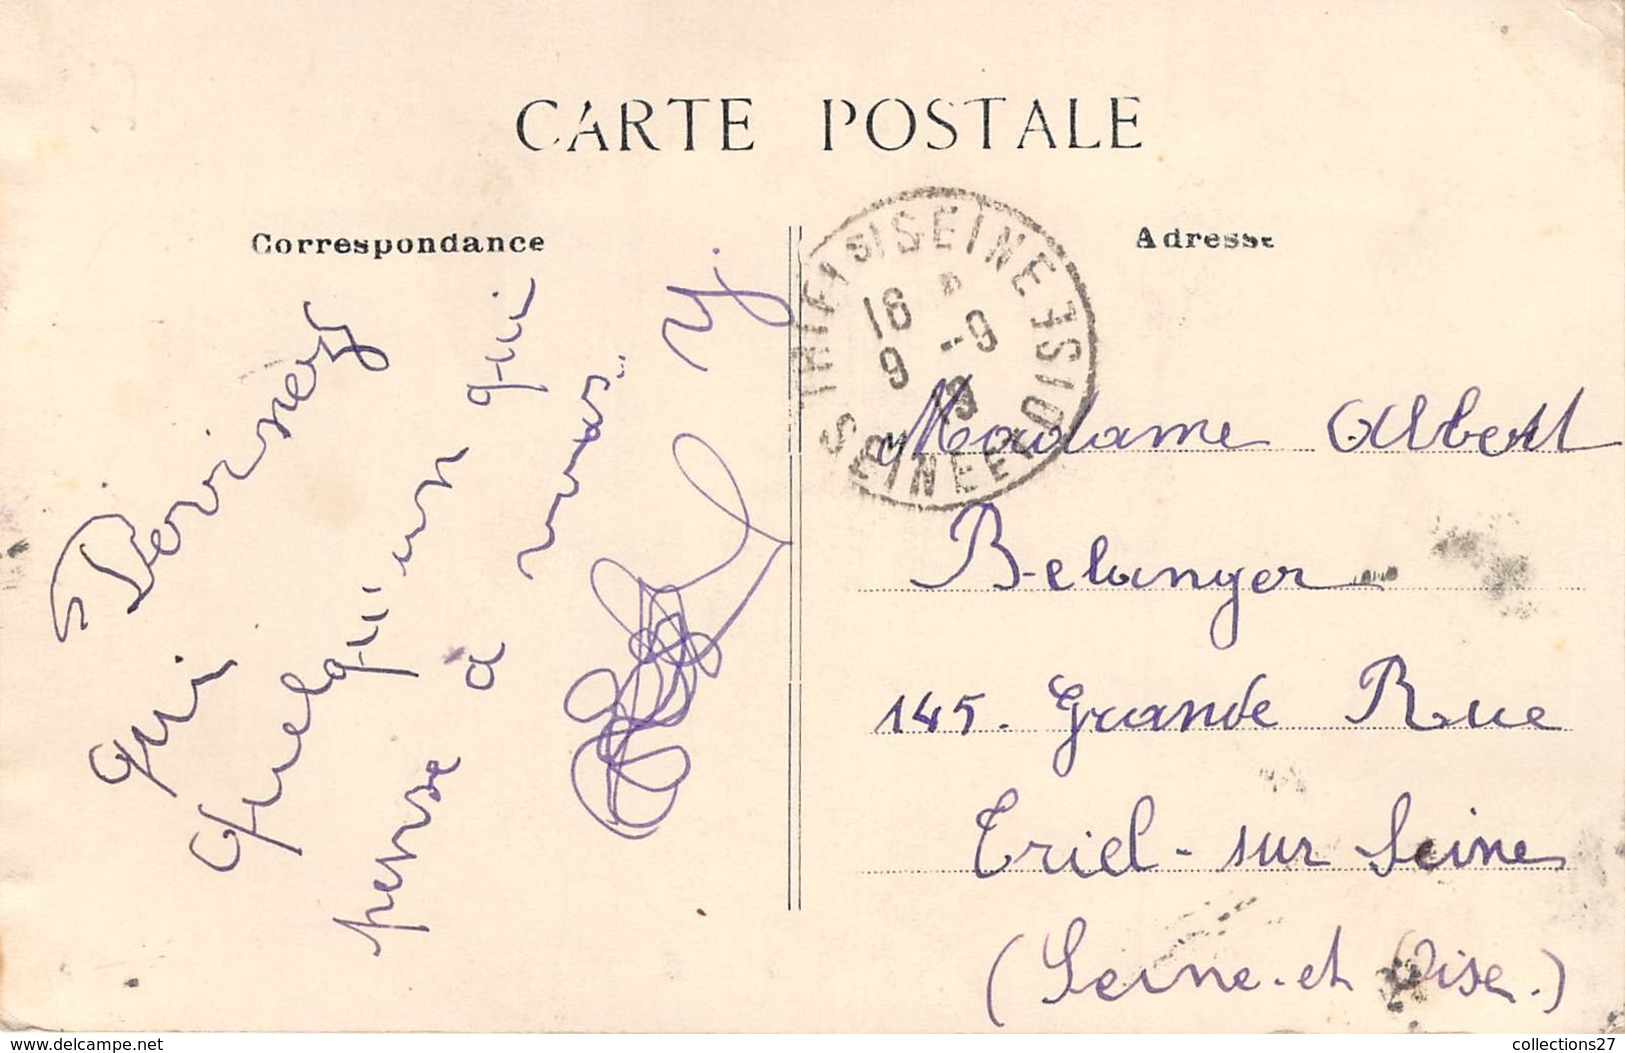 CARTE POSTALE
Correspondance
Adresse
TRIEL S/SEINE
SEINE ET OISE
18
9 -9
19
Devinez
qui
Quelqu'un qui
pense à
vous... Y.
Madame Albert
Belanger
145. Grande Rue
Triel-sur Seine
(Seine-et Oise.)
www.delcampe.net
collections27